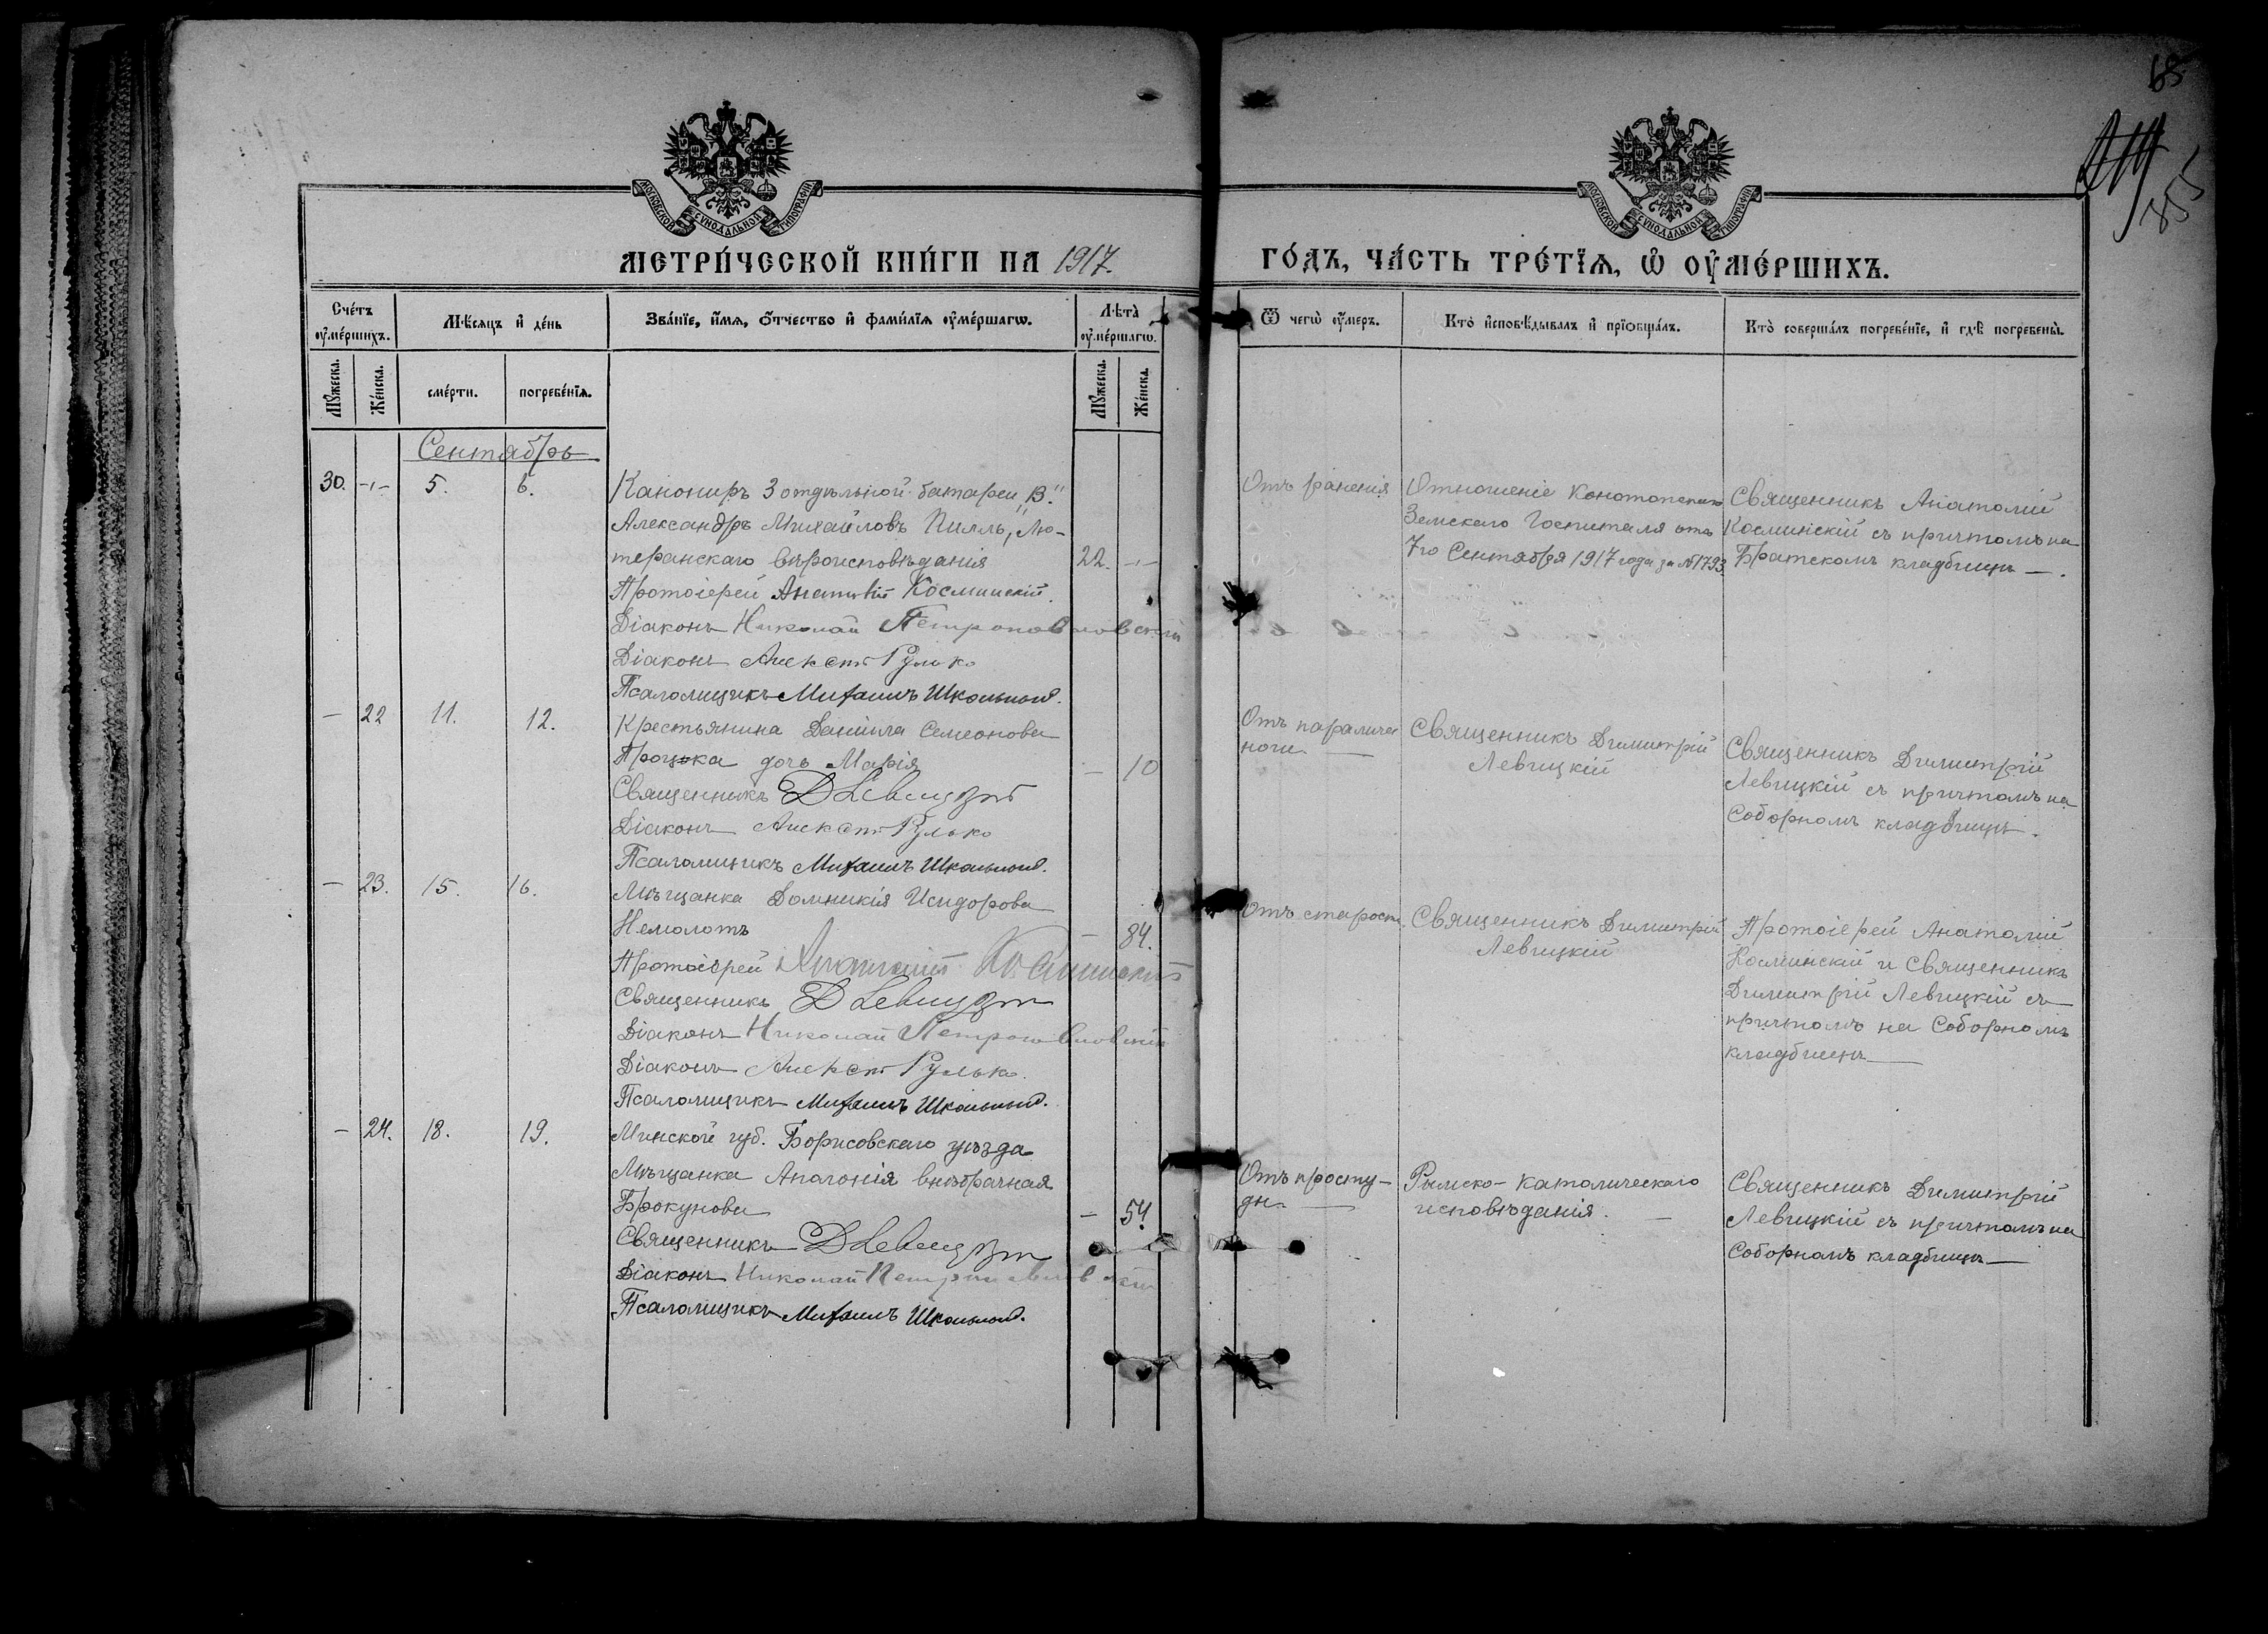 65
855
МОСКОВСКОЙ СѴНОДАЛЬНОЙ ТИПОГРАФІИ
МОСКОВСКОЙ СѴНОДАЛЬНОЙ ТИПОГРАФІИ
МЕТРИ́ЧЕСКОЙ КНИ́ГИ НА 1917.
ГО́ДЪ, ЧА́СТЬ ТРЕ́ТЇѦ, Ѡ҆ ОУ҆МЕ́РШИХЪ.
Сче́тъ оу҆ме́ршихъ.
Мѣ́сѧцъ и҆ де́нь
Зва́нїе, и҆́мѧ, ѻ҆́тчество и҆ фами́лїѧ оу҆ме́ршагѡ.
Лѣ́та оу҆ме́ршагѡ.
Ѿ чегѡ̀ оу҆́меръ.
Кто̀ и҆сповѣ́дывалъ и҆ прїѡбща́лъ.
Кто̀ соверша́лъ погребе́нїе, и҆ гдѣ̀ погребены̀.
Мꙋ́жеска.
Же́нска.
сме́рти.
погребе́нїѧ.
Мꙋ́жеска.
Же́нска.
Сентябрь
30. -"- 5. 6.
Канониръ 3 отдѣльной батареи „В."
Александръ Михайловъ Пилль, Лю-
теранскаго вѣроисповѣданія
22. -"-
Протоіерей Анатолій Косминскій.
Діаконъ Николай Петропавловскій
Діаконъ Алексій Рулько
Псаломщикъ Михаилъ Школьный.
Отъ раненія
Отношеніе Конотопскаго
Земскаго Госпиталя отъ
7го Сентября 1917 года за №1793.
Священникъ Анатолій
Косминскій съ причтомъ на
Братскомъ кладбищѣ —.
— 22 11. 12.
Крестьянина Даніила Семеонова
Процка дочь Марія
— 10
Священникъ Д Левицкій
Діаконъ Алексій Рулько
Псаломщикъ Михаилъ Школьный.
Отъ паралича
ноги —
Священникъ Димитрій
Левицкій
Священникъ Димитрій
Левицкій съ причтомъ на
Соборномъ кладбищѣ.
— 23. 15. 16.
Мѣщанка Домникія Исидорова
Немолотъ
— 84.
Протоіерей Анатолій Косминскій
Священникъ Д Левицкій
Діаконъ Николай Петропавловскій
Діаконъ Алексій Рулько.
Псаломщикъ Михаилъ Школьный.
Отъ старости.
Священникъ Димитрій
Левицкій
Протоіерей Анатолій
Косминскій и Священникъ
Димитрій Левицкій съ
причтомъ на Соборномъ
кладбищѣ —
— 24. 18. 19.
Минской губ. Борисовскаго уѣзда
Мѣщанка Аполонія внѣбрачная
Брокунова
— 54.
Священникъ Д Левицкій
Діаконъ Николай Петропавловскій
Псаломщикъ Михаилъ Школьный.
Отъ просту-
ды —
Римско-католическаго
исповѣданія. —
Священникъ Димитрій
Левицкій съ причтомъ на
Соборномъ кладбищѣ —